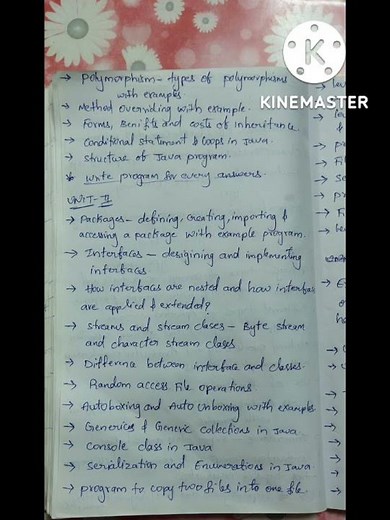 KINEMASTER
→ Polymorphism - types of polymorphisms
with examples.
→ Method overriding with example.
→ Forms, Benifits and costs of inheritance.
→ Conditional statement & loops in Java.
→ structure of Java program.
* write program for every answers.
UNIT-II
→ Packages - defining, Creating, importing &
accessing a package with example program.
→ Interfaces - desigining and implementing
interfaces
→ How interfaces are nested and how interfac
are applied & extended?
→ streams and stream clases - Byte stream
and character stream clases.
→ Difference between interface and classes.
→ Random access File operations.
→ Autoboxing and Auto Unboxing with examples
→ Generics & Generic collections in Java
→ Console class in Java
→ Serialization and Enumerations in Java
→ program to copy two files in to one file